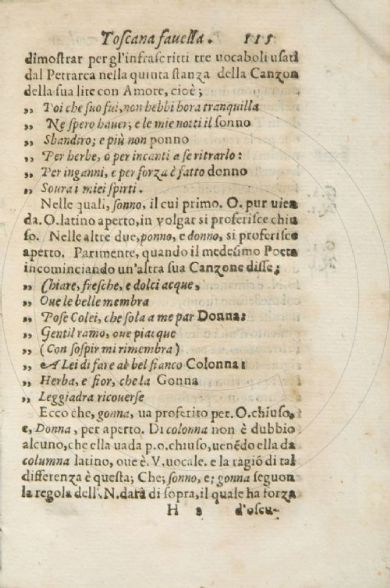 Toscana favella. 115
dimostrar per gl'infrascritti tre vocaboli usati
dal Petrarca nella quinta stanza della Canzon
della sua lite con Amore, cioè;
„ Poi che suo fui, non hebbi hora tranquilla
„ Ne spero hauer; e le mie notti il sonno
„ Sbandiro; e più non ponno
„ Per herbe, o per incanti a se ritrarlo:
„ Per inganni, e per forza è fatto donno
„ Soura i miei spirti.
Nelle quali, sonno, il cui primo. O. pur uien
da. O. latino aperto, in volgar si proferisce chiu
so. Nelle altre due, ponno, e donno, si proferisce
aperto. Parimente, quando il medesimo Poeta
incominciando un'altra sua Canzone disse;
„ Chiare, fresche, e dolci acque,
„ Oue le belle membra
„ Pose Colei, che sola a me par Donna:
„ Gentil ramo, oue piacque
„ (Con sospir mi rimembra)
„ A Lei di fare al bel fianco Colonna:
„ Herba, e fior, che la Gonna
„ Leggiadra ricouerse
Ecco che, gonna, ua proferito per. O. chiuso,
e, Donna, per aperto. Di colonna non è dubbio
alcuno, che ella uada p. o. chiuso, uenẽdo ella da
columna latino, oue è. V. uocale. e la ragiõ di tal
differenza è questa; Che; sonno, e; gonna seguon
la regola dell'. N. data di sopra, il quale ha forza
H d'oscu-